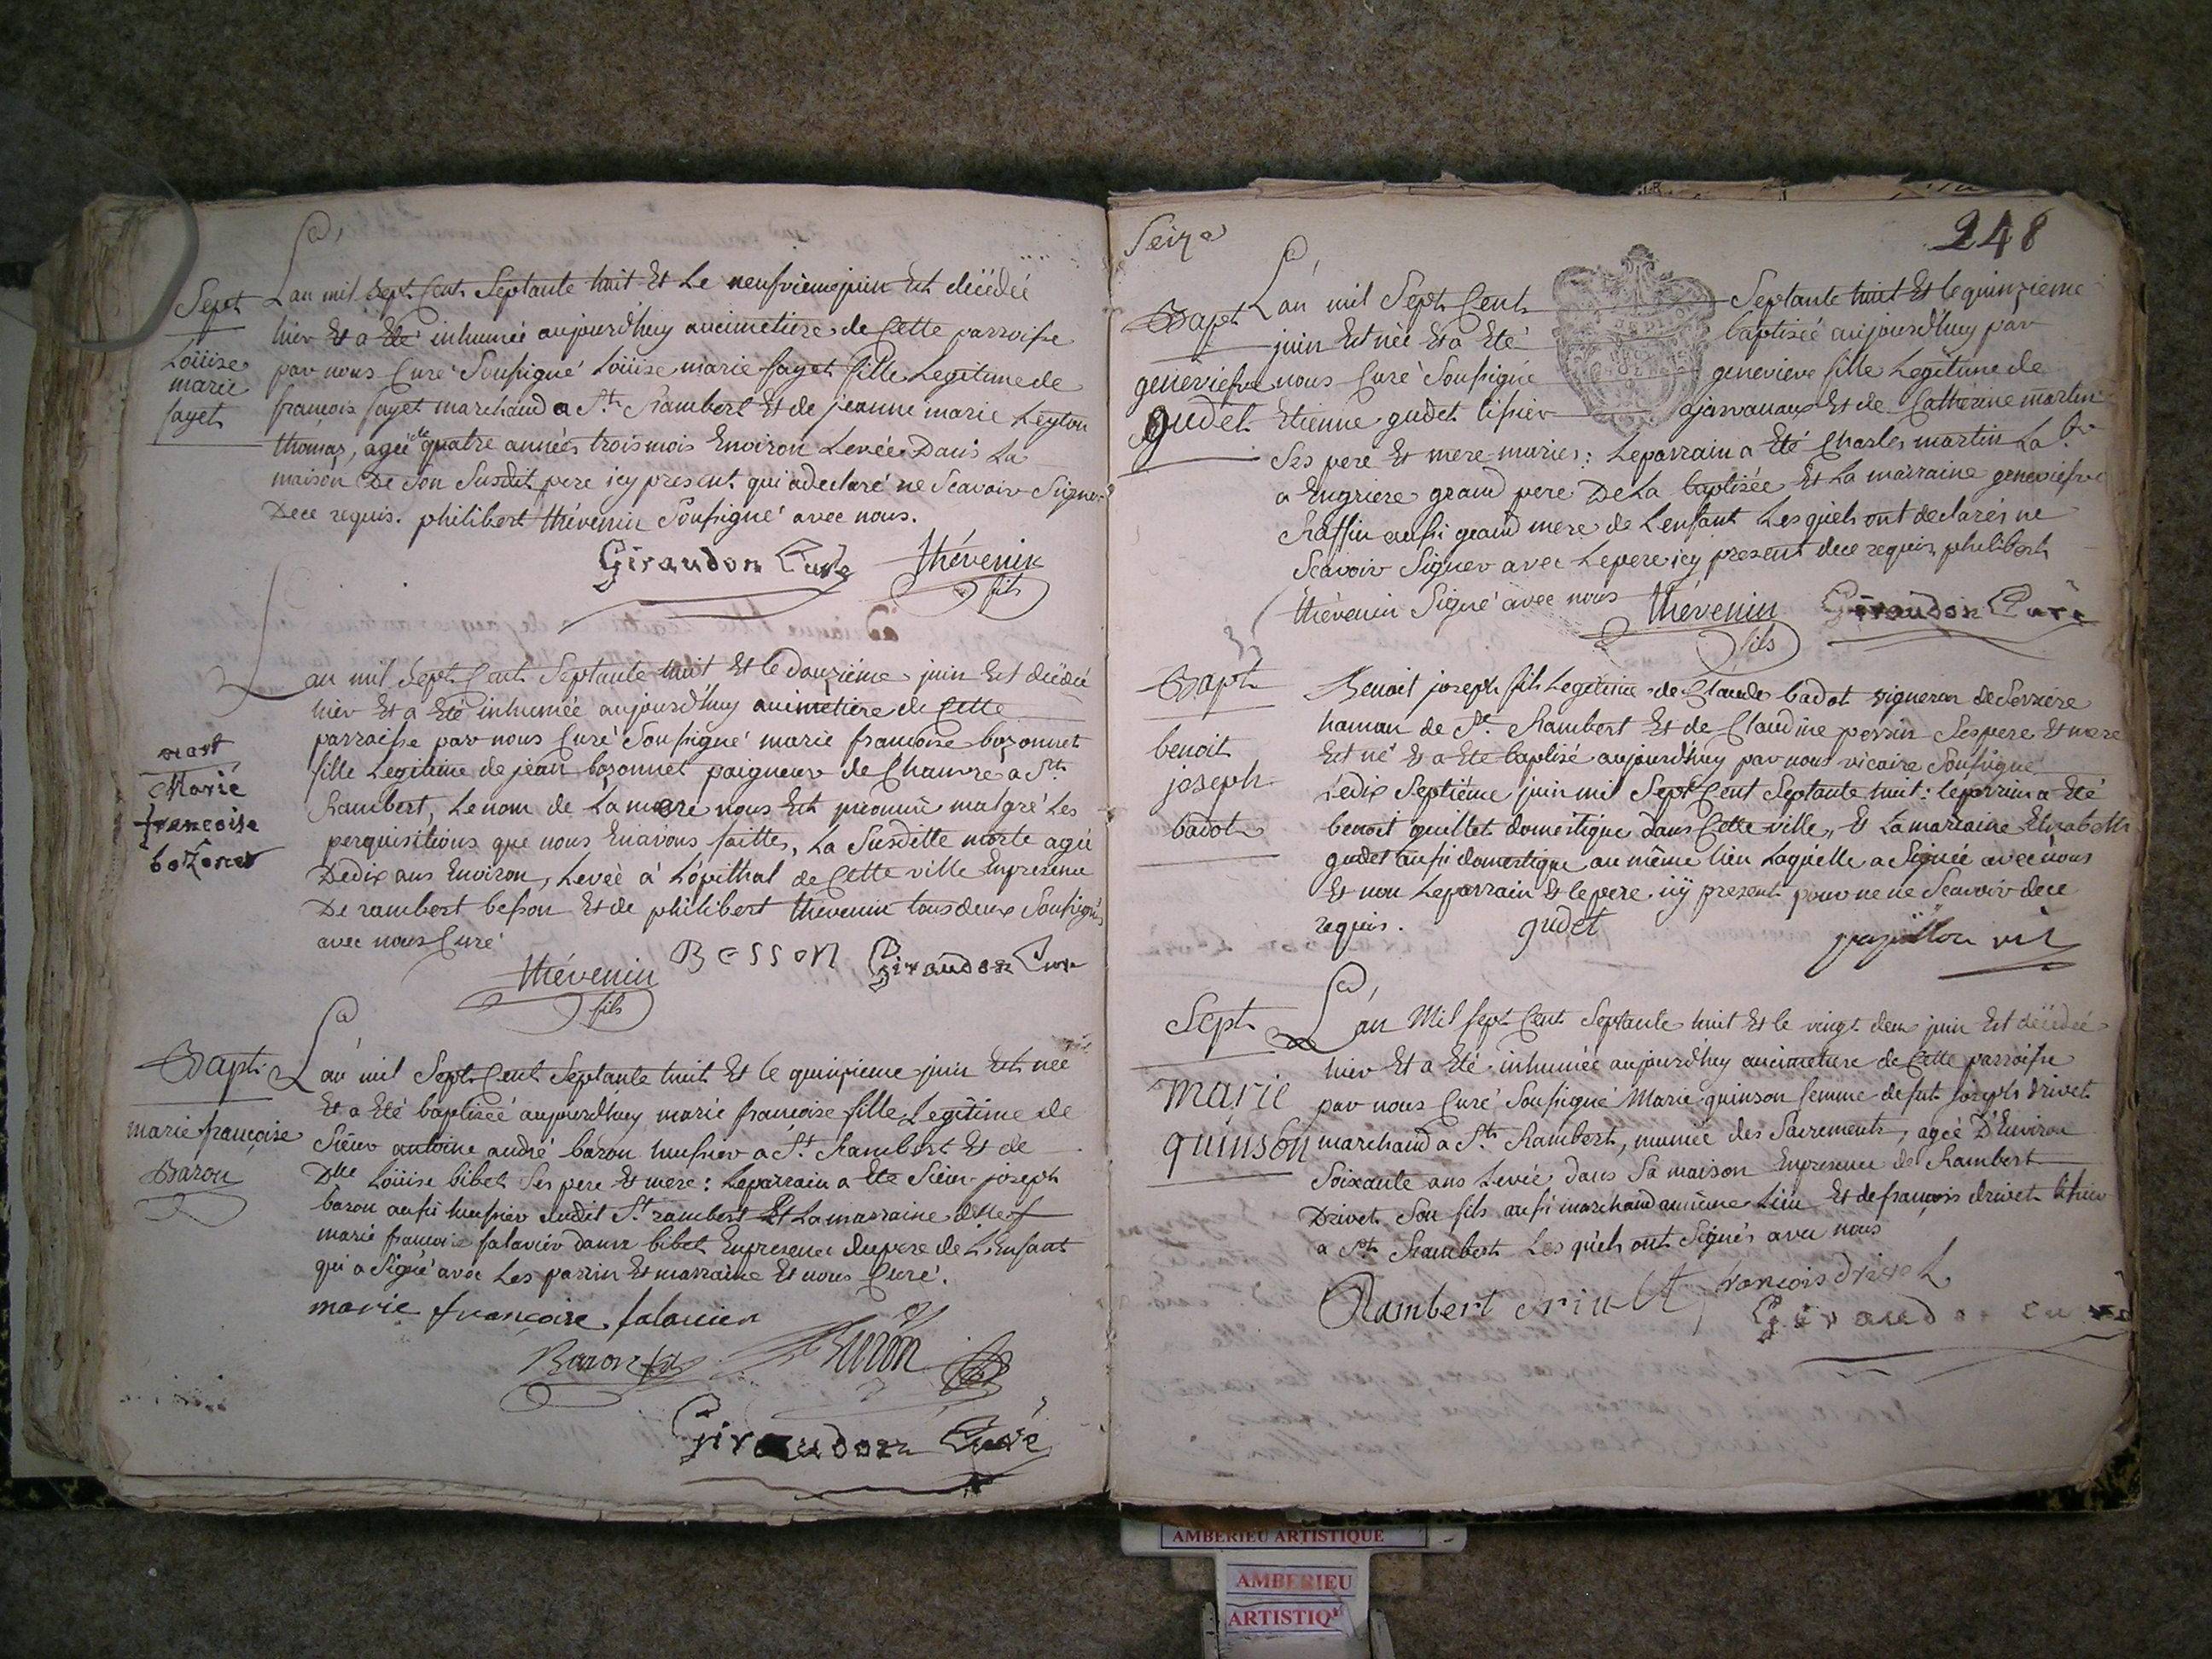 Sept
Loüise
marie
fayet
Lan mil Sept Cent Septante huit Et Le neufvieme juin Est décédée
hier Et a Eté inhumée aujourd'huy au cimetiere de Cette parroisse
par nous Curé Soussigné Loüise marie fayet fille Legitime de
francois fayet marchand a St. Rambert Et de jeanne marie Leyton
thomas, agée de quatre années trois mois Environ Levée Dans La
maison De Son Susdit pere icy present qui a declaré ne Scavoir Signer
De ce requis. philibert thévenin Soussigné avec nous.
Giraudon Curé thévenin
fils
mort
Marie
francoise
bozonet
Lan mil Sept Cent Septante huit Et le douzième juin Est décédée
hier Et a Eté inhumée aujourd'huy au cimetiere de Cette
parroisse par nous Curé Soussigné marie francoise bozonnet
fille Legitime de jean bozonnet paigneur de Chanvre a St.
Rambert, Le nom de La mere nous Est inconnu malgré Les
perquisitions que nous En avons faittes, La Susdette morte agée
De dix ans Environ, Levée à L'opithal de Cette ville En presence
De rambert besson Et de philibert thevenin tous deux Soussignés
avec nous Curé
thévenin BESSON Giraudon Curé
fils
Bapt.
marie françoise
Baron
Lan mil Sept Cent Septante huit Et le quinzieme juin Est née
Et a Eté baptisée aujourdhuy marie francoise fille Legitime de
Sieur antoine andré baron huissier a St. Rambert Et de
Dlle Loüise bibet Ses pere Et mere: Le parrain a Ete Sieur joseph
baron aussi huissier audit St. rambert Et La marraine delle
marie francoise falavier dame bibet En presence du pere de L'Enfant
qui a Signé avec Les parrin Et marraine Et nous Curé.
marie francoise falavier
Baron fils Baron
Giraudon Curé
Seize
248
Bapt
geneviefve
gudet
Lan mil Sept Cent Septante huit Et le quinzieme
juin Est née Et a Eté baptisée aujourdhuy par
nous Curé Soussigné genevieve fille Legitime de
Etienne gudet tissier a javanaux Et de Catherine martin
Ses pere Et mere mariés: Le parrain a Eté Charles martin La br
a Engriere grand pere De La baptisée Et La marraine geneviefve
Raffin aussi grand mere de L'enfant Lesquels ont declarés ne
Scavoir Signer avec Le pere icy present de ce requis philibert
thévenin Signé avec nous thévenin Giraudon Curé
fils
Bapt
benoit
joseph
badot
Benoit joseph fils Legitime de Claude badot vigneron de Serriere
hamau de St. Rambert Et de Claudine perrin Ses pere Et mere
Est né Et a Eté baptisé aujourd'huy par nous vicaire Soussigné
Le dix Septiéme juin mil Sept Cent Septante huit: le parrain a Eté
benoit guillet domestique dans Cette ville, Et La marraine Elizabeth
gudet aussi domestique au même lieu Laquelle a Signée avec nous
Et non Le parrain Et le pere icy present pour ne Scavoir de ce
requis. gudet papillon vic
Sept
marie
quinson
Lan Mil Sept Cent Septante huit Et le vingt deux juin Est décédée
hier Et a Eté inhumée aujourd'huy au cimetiere de Cette parroisse
par nous Curé Soussigné Marie quinson femme de fut joseph drivet
marchand a St. Rambert, munie des Sacrements, agée D'Environ
Soixante ans Levée dans Sa maison En presence de Rambert
Drivet Son fils aussi marchand au même Lieu Et de françois drivet tissier
a St. Rambert Lesquels ont Signés avec nous
Rambert drivet francois drivet
Giraudon Curé
AMBERIEU ARTISTIQUE
AMBERIEU
ARTISTIQ